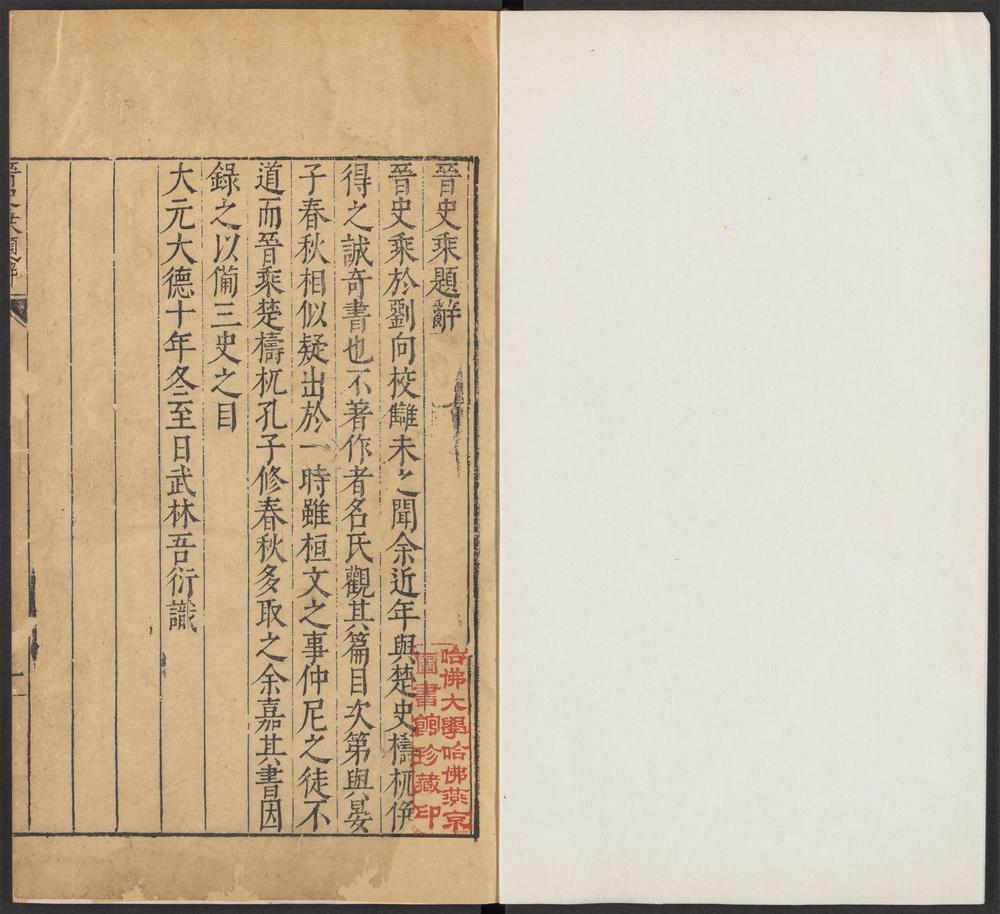 晉史乘題辭
晉史乘於劉向校讎未之聞余近年與楚史檮杌併
得之誠奇書也不著作者名氏觀其篇目次第與晏
子春秋相似疑出於一時雖桓文之事仲尼之徒不
道而晉乘楚檮杌孔子修春秋多取之余嘉其書因
錄之以僃三史之目
大元大德十年冬至日武林吾衍識
哈佛大學哈佛燕京
圖書館珍藏印